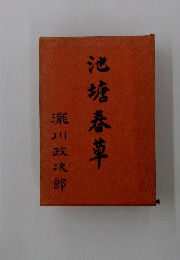 池塘春草
瀧川政次郎